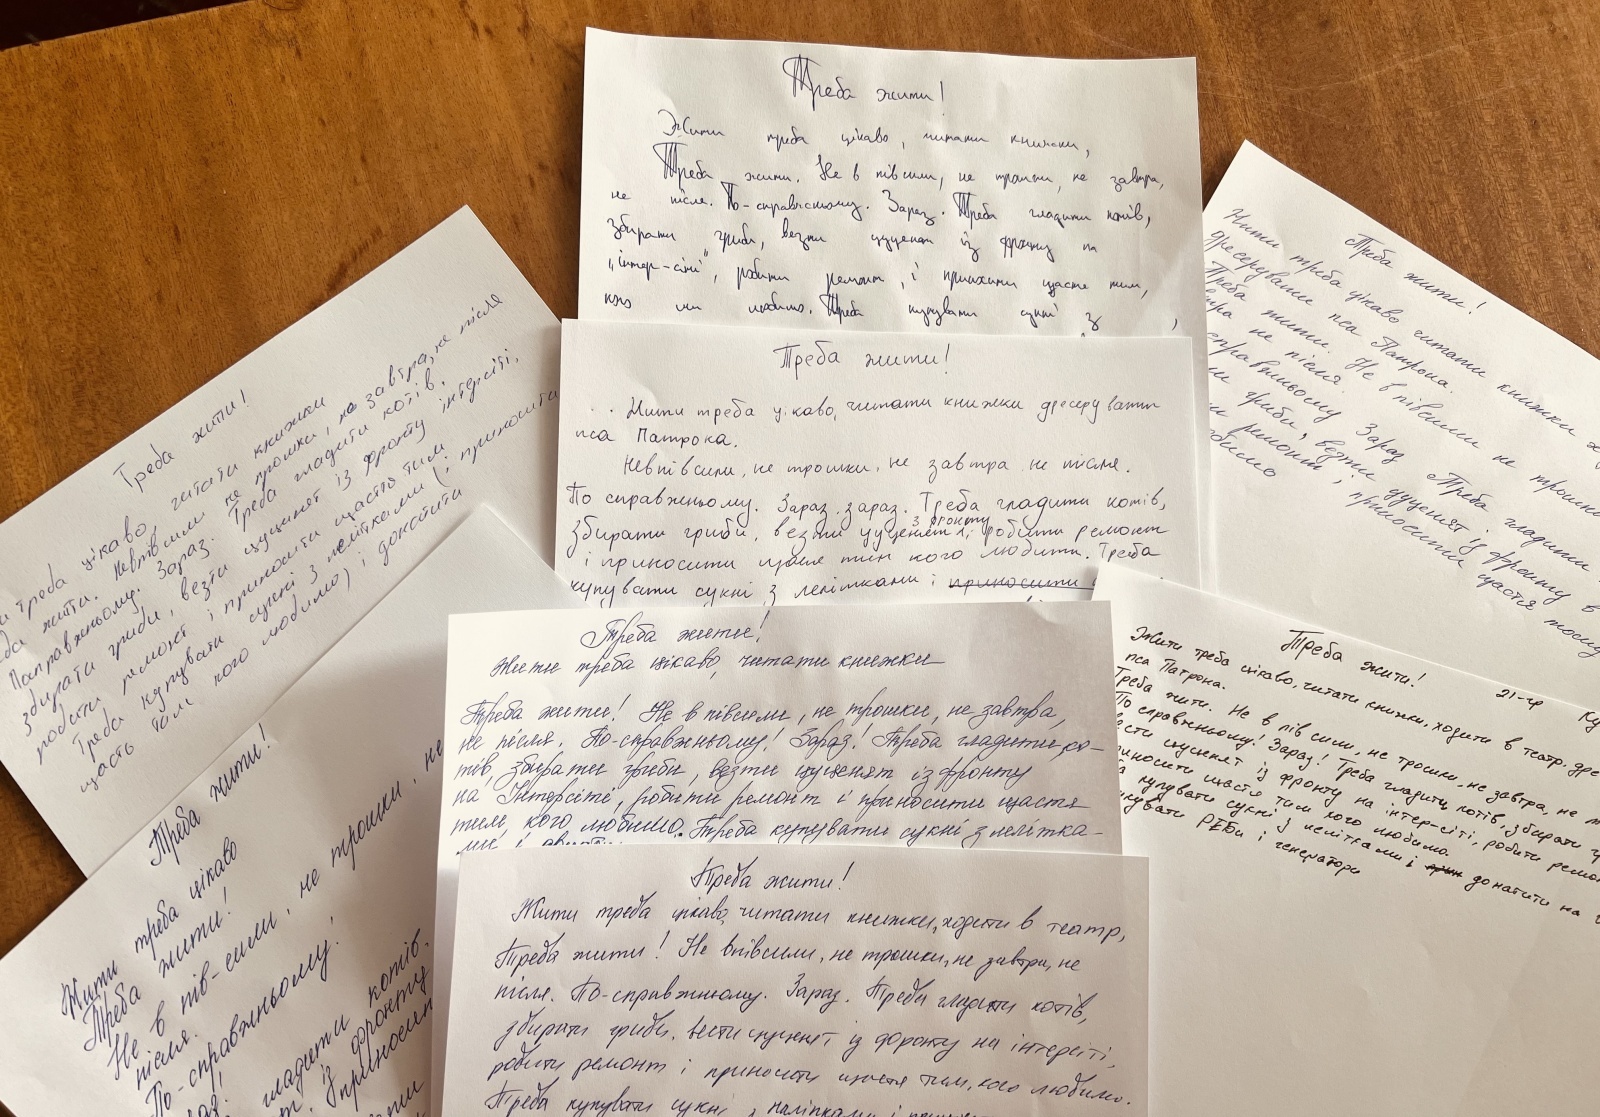 Треба жити!
Жити треба цікаво, читати книжки,
Треба жити. Не в півсили, не трошки, не завтра,
не після. По-справжньому. Зараз. Треба гладити котів,
збирати гриби, везти цуценят із фронту на
робити ремонт, і приносити щастя тим,
кого ми любимо. Треба купувати сукні з
Треба жити!
Жити треба цікаво, читати книжки дресерувати
пса Патрона.
Невпівсили, не трошки, не завтра не після.
По справжньому. Зараз, зараз. Треба гладити котів,
з фронту
збирати гриби, везти цуценят і, робити ремонт
і приносити щастя тим кого любити. Треба
купувати сукні з лелітками і приносити
Треба жити!
Жити треба цікаво, читати книжки
Треба жити! Не в півсили, не трошки, не завтра,
не після. По-справжньому! Зараз! Треба гладити ко-
тів, збирати гриби, везти цуценят із фронту
на Інтерсіті, робити ремонт і приносити щастя
тим, кого любимо. Треба купувати сукні з лелітка-
ми і
Треба жити!
Жити треба цікаво, читати книжки, ходити в театр,
Треба жити! Не впівсили, не трошки, не завтра, не
після. По-справжньому. Зараз. Треба гладити котів,
збирати гриби. Вести цуценят із фронту на інтерсіті,
робити ремонт і приносити щастя тим, кого любимо.
Треба купувати сукні з наліпками і
Треба жити!
треба цікаво, читати книжки
жити. Невпівсили не трошки, не завтра, не після
Паправжньому. Зараз. Треба гладити котів.
збирати гриби, везти цуценят із фронту інтерсіті,
робити ремонт і приносити щастя тим
Треба купувати сукні з лелітками (і приносити
щасть тим кого любимо) і донатити
Треба жити!
Жити треба цікаво
Треба жити!
Не в пів-сили, не трошки, не
після.
По-справжньому!
гладити котів.
із фронту
приносит
Треба жити!
Жити треба цікаво читати книжки
дресерувати пса Патрона.
Треба жити. Не в півсили не трошки
не після
справжньому Зараз Треба гладити
гриби, везти цуценят із фронту в
ремонт і приносити щастя
Треба жити! 21-гр
Жити треба цікаво, читати книжки, ходити в театр. дре
пса Патрона.
Треба жити. Не в пів сили, не трошки, не завтра, не
По справжньому! Зараз! Треба гладити котів, збирати
вести цуценят із фронту на інтер-сіті, робити ремон
приносити щастя тим кого любимо.
купувати сукні з лелітками і донатити на
купувати РЕБи і генератори